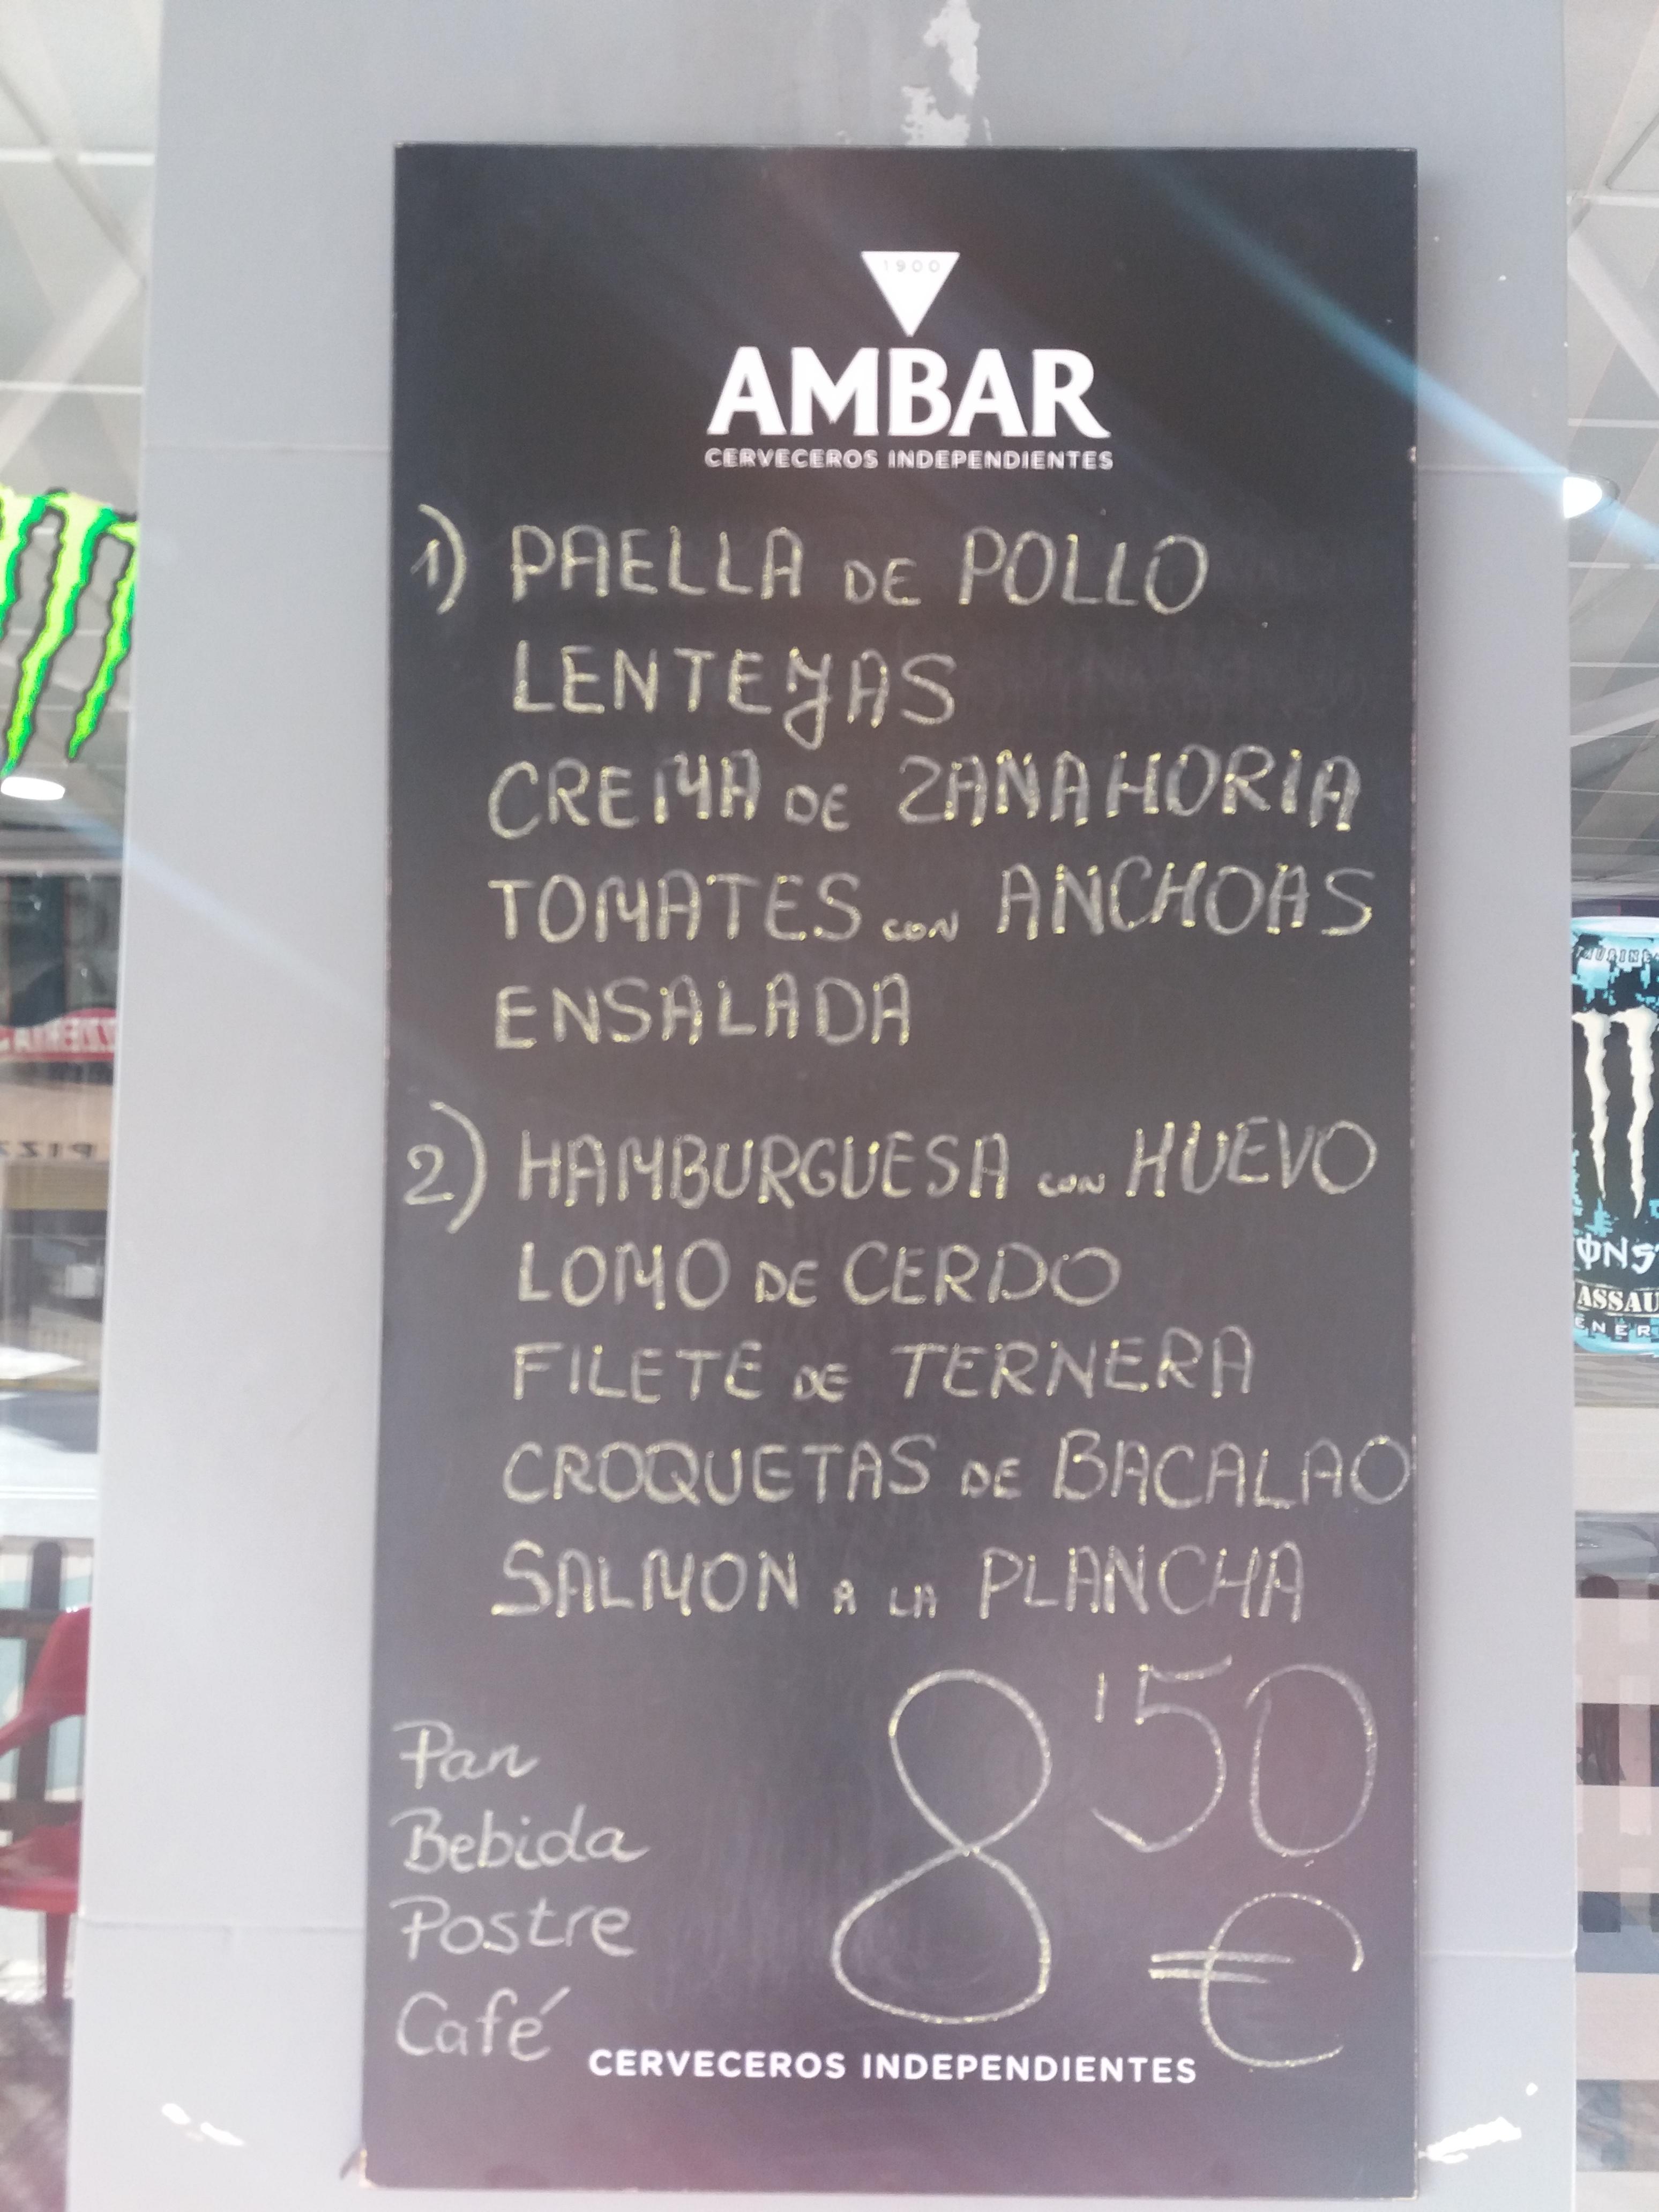 1900
AMBAR
CERVECEROS INDEPENDIENTES
1) PAELLA DE POLLO
LENTEJAS
CREMA DE ZANAHORIA
TOMATES con ANCHOAS
ENSALADA
2) HAMBURGUESA con HUEVO
LOMO DE CERDO
FILETE DE TERNERA
CROQUETAS DE BACALAO
SALMON A LA PLANCHA
8'50
€
Pan
Bebida
Postre
Café
CERVECEROS INDEPENDIENTES